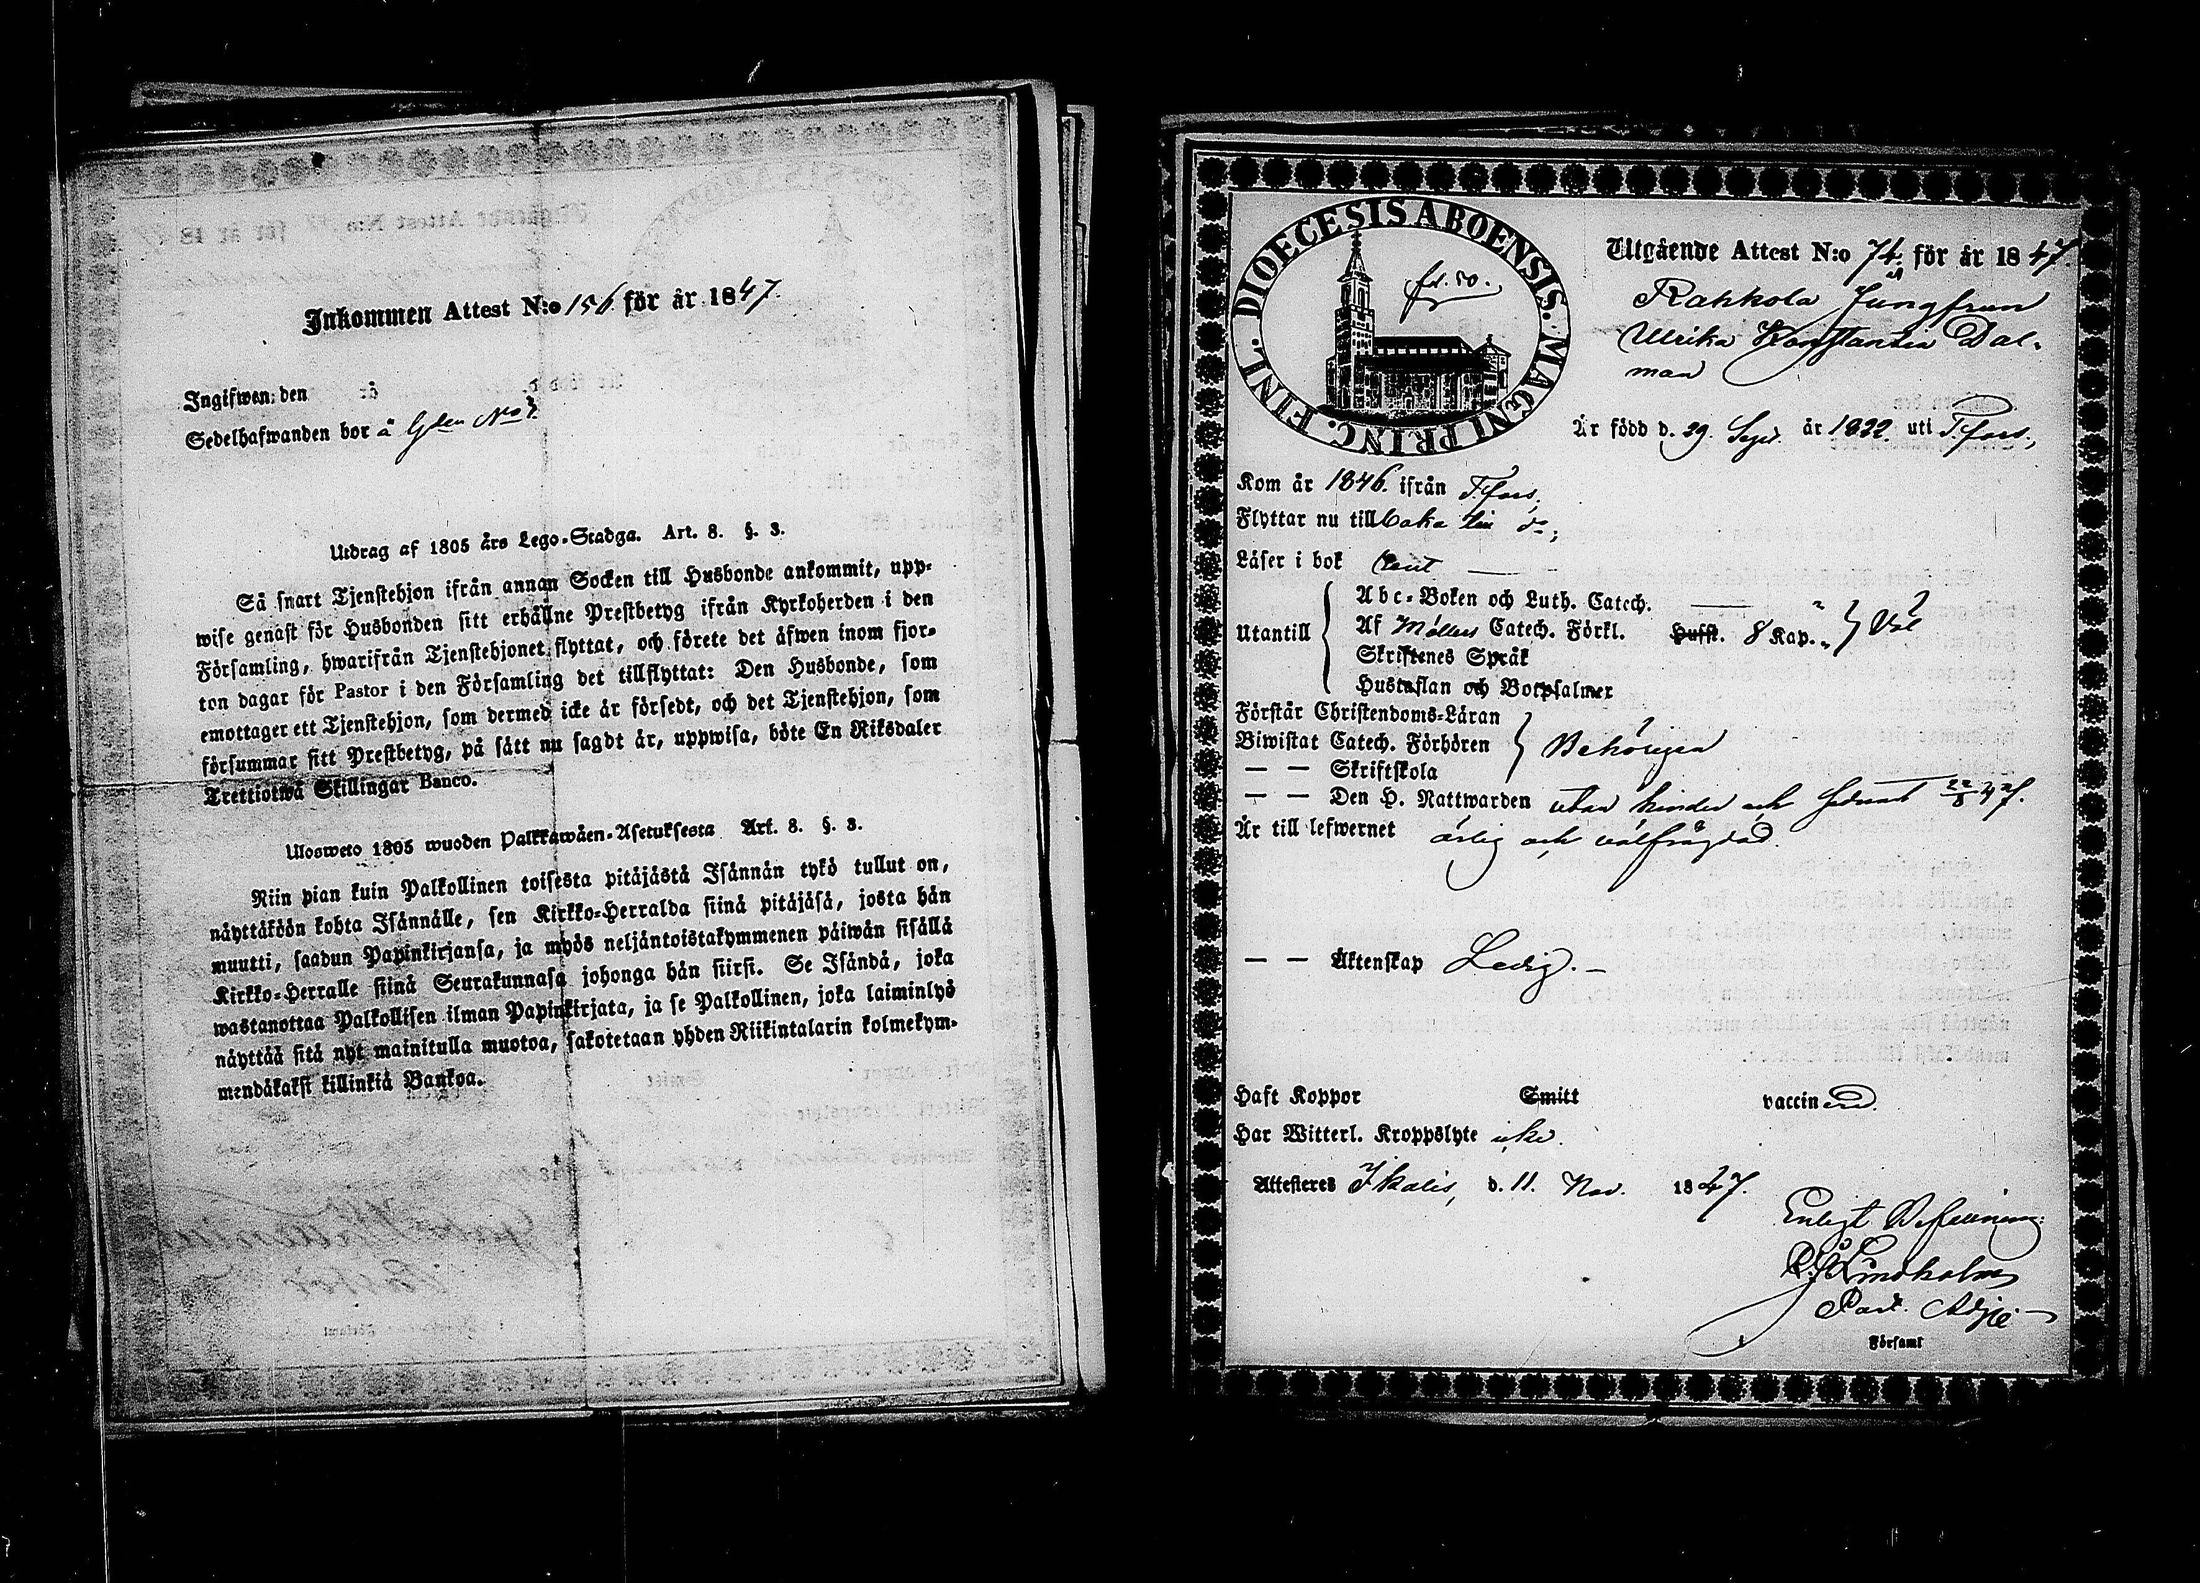 Inkommen Attest N:o 156 för år 1847.
Ingifwen den
Sedelhafwanden bor å Gden No 7.
Utdrag af 1805 års Lego-Stadga. Art. 8. §. 3.
Så snart Tjenstehjon ifrån annan Socken till Husbonde ankommit, upp-
wise genast för Husbonden sitt erhållne Prestbetyg ifrån Kyrkoherden i den
Församling, hwarifrån Tjenstehjonet flyttat, och förete det äfwen inom fjor-
ton dagar för Pastor i den Församling det tillflyttat: Den Husbonde, som
emottager ett Tjenstehjon, som dermed icke är försedt, och det Tjenstehjon, som
försummar sitt Prestbetyg, på sätt nu sagdt är, uppwisa, böte En Riksdaler
Trettiotwå Skillingar Banco.
Ulosweto 1805 wuoden Palkkawäen-Asetuksesta Art. 8. §. 3.
Niin pian kuin Palkollinen toisesta pitäjästä Isännän tykö tullut on,
näyttäköön kohta Isännälle, sen Kirkko-Herralda siinä pitäjäsä, josta hän
muutti, saadun Papinkirjansa, ja myös neljäntoistakymmenen päiwän sisällä
Kirkko-Herralle siinä Seurakunnasa johonga hän siirsi. Se Isändä, joka
wastanottaa Palkollisen ilman Papinkirjata, ja se Palkollinen, joka laiminlyö
näyttää sitä nyt mainitulla muotoa, sakotetaan yhden Riikintalarin kolmekym-
mendäkaksi killinkiä Bankoa.
DIOECESIS ABOENSIS. MAGNI PRINC. FINL.
fd. 50.
Utgående Attest N:o 74. för år 1847.
Rahkola Jungfrun
Ulrika Konstantia Dal-
man
Är född d. 29. Sept. år 1822. uti T.fors,
Kom år 1846. ifrån T.fors,
Flyttar nu tillbaka till do;
Läser i bok rent
Utantill
Abc-Boken och Luth. Catech.
Af Möllers Catech. Förkl. Husst. 8 Kap. Väl
Skriftenes Språk
Hustaflan och Botpsalmer
Förstår Christendoms-Läran
Biwistat Catech. Förhören Behörigen
— — Skriftskola
— — Den H. Nattwarden utan hinder och sednast 22/8 47.
Är till lefwernet ärlig och välfrägdad.
— — Äktenskap Ledig.
Haft Koppor Smitt vaccinerad.
Har Witterl. Kroppslyte icke.
Attesteres Ikalis, d. 11. Nov. 1847.
Enligt Befallning:
Lindholm
Past. Adj:
Församl